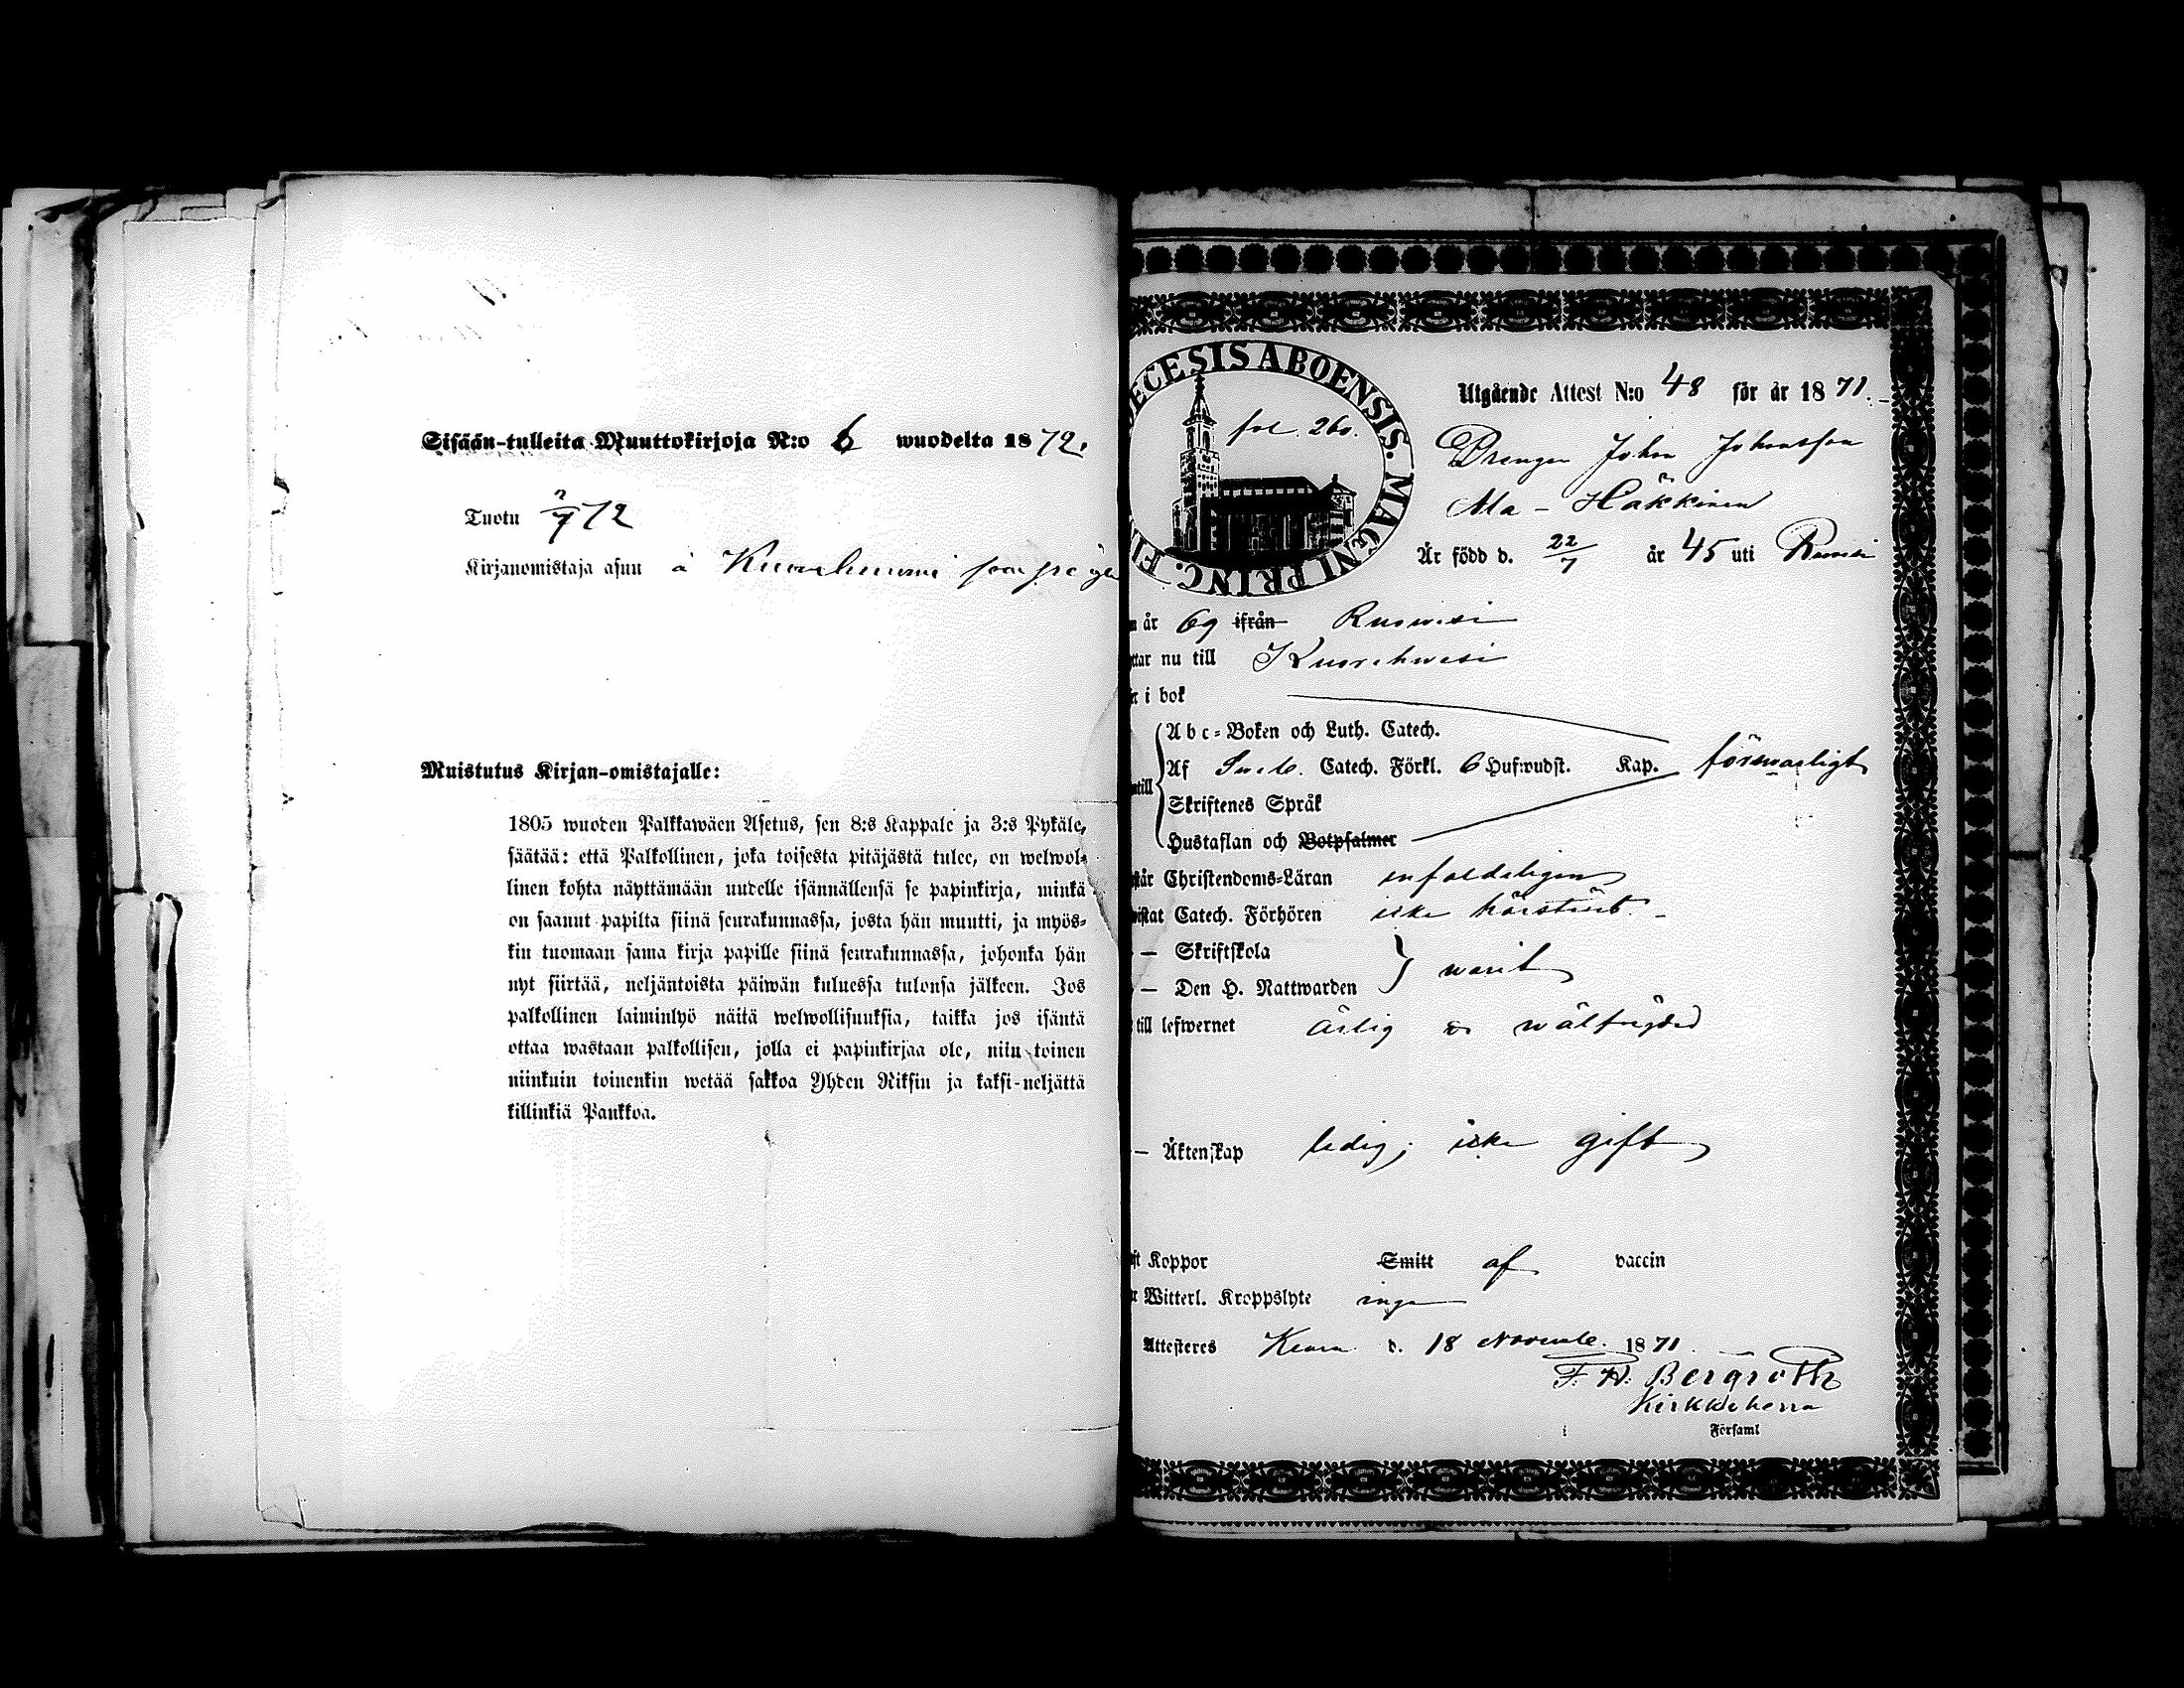 Sisään-tulleita Muuttokirjoja N:o 6 wuodelta 1872.
Tuotu 7/7 72
Kirjanomistaja asuu å
Muistutus Kirjan-omistajalle:
1805 wuoden Palkkawäen Asetus, sen 8:s Kappale ja 3:s Pykäle,
säätää: että Palkollinen, joka toisesta pitäjästä tulee, on welwol-
linen kohta näyttämään uudelle isännällensä se papinkirja, minkä
on saanut papilta siinä seurakunnassa, josta hän muutti, ja myös-
kin tuomaan sama kirja papille siinä seurakunnassa, johonka hän
nyt siirtää, neljäntoista päiwän kuluessa tulonsa jälkeen. Jos
palkollinen laiminlyö näitä welwollisuuksia, taikka jos isäntä
ottaa wastaan palkollisen, jolla ei papinkirjaa ole, niin toinen
niinkuin toinenkin wetää sakkoa Yhden Riksin ja kaksi-neljättä
killinkiä Pankkoa.
ECESIS ABOENSIS. MAGNI PRINC. FI
fol. 260.
Utgående Attest N:o 48 för år 1871.
Drengen Johan Johansson
Ala-Häkkinen
Är född d. 22/7 år 45 uti Ruovesi
år 69 ifrån Ruowesi
ttar nu till Kuorehwesi
i bok
Abc-Boken och Luth. Catech.
Af Sveb. Catech. Förkl. 6 Hufwudst. Kap. förswarligt
Skriftenes Språk
Hustaflan och Botpsalmer
står Christendoms-Läran enfaldeligen
wistat Catech. Förhören icke
— Skriftskola
— Den H. Nattwarden } warit
till lefwernet ärlig o wälfrägdad
— Äktenskap ledig; icke gift
ft Koppor Smitt af vaccin
Witterl. Kroppslyte inga
Attesteres d. 18 Novemb. 1871.
F. W. Bergroth
Kirkkoherra
i Församl